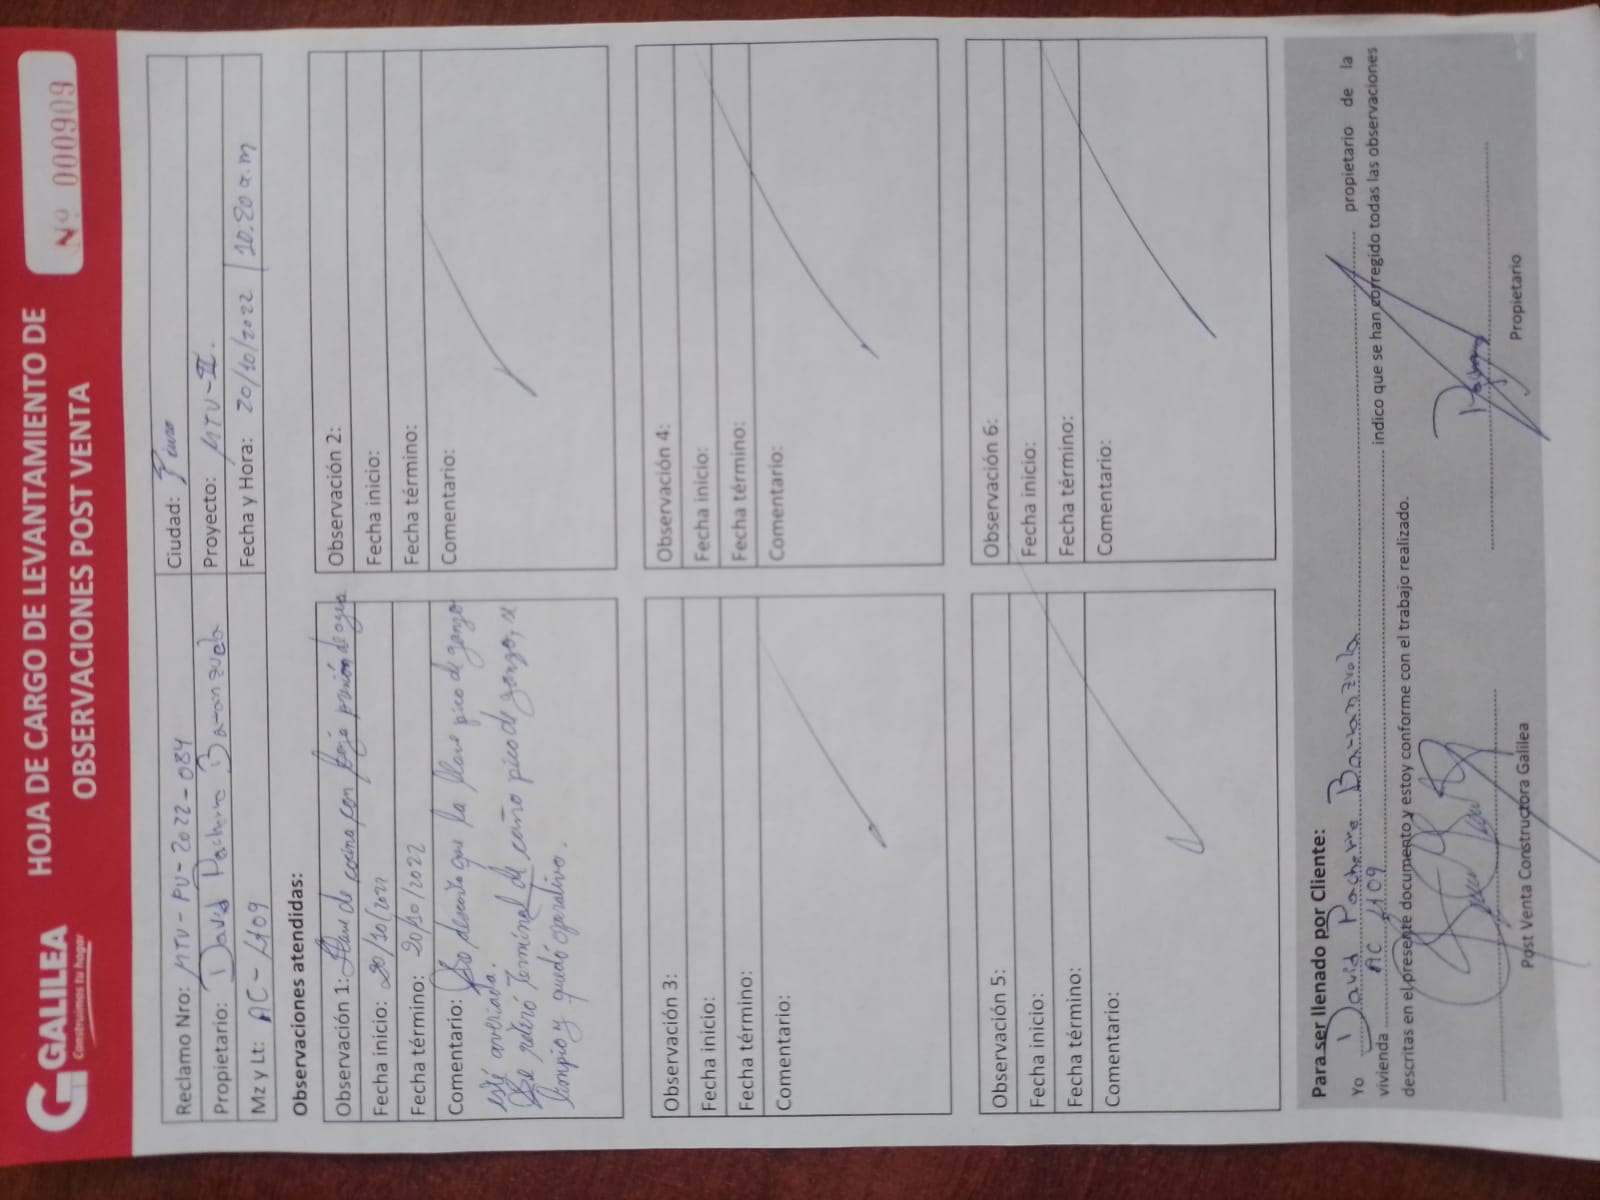 GALILEA
Construimos tu hogar
HOJA DE CARGO DE LEVANTAMIENTO DE
OBSERVACIONES POST VENTA
Nº 000909
Reclamo Nro: MTU-PU-2022-084
Ciudad: Piura
Propietario: David Pacherre Baranzuela
Proyecto: MTU-III.
Mz y Lt: AC-L109
Fecha y Hora: 20/10/2022 / 10:20 a.m
Observaciones atendidas:
Observación 1: Llave de cocina con baja presión de agua
Fecha inicio: 20/10/2022
Fecha término: 20/10/2022
Comentario: Se descarta que la llave pico de ganzo
esté averiada.
Se retiró terminal de caño pico de ganzo, se
limpio y quedó operativo.
Observación 2:
Fecha inicio:
Fecha término:
Comentario:
Observación 3:
Fecha inicio:
Fecha término:
Comentario:
Observación 4:
Fecha inicio:
Fecha término:
Comentario:
Observación 5:
Fecha inicio:
Fecha término:
Comentario:
Observación 6:
Fecha inicio:
Fecha término:
Comentario:
Para ser llenado por Cliente:
Yo David Pacherre Baranzuela propietario de la
vivienda AC L109 indico que se han corregido todas las observaciones
descritas en el presente documento y estoy conforme con el trabajo realizado.
Post Venta Constructora Galilea
Propietario